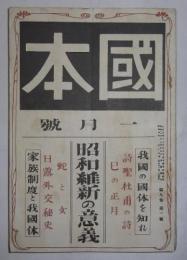 國本
一月號
我國の國体を知れ
詩聖杜甫の詩
巳の正月
昭和維新の意義
蛇と女
日露外交秘史
家族制度と我國体